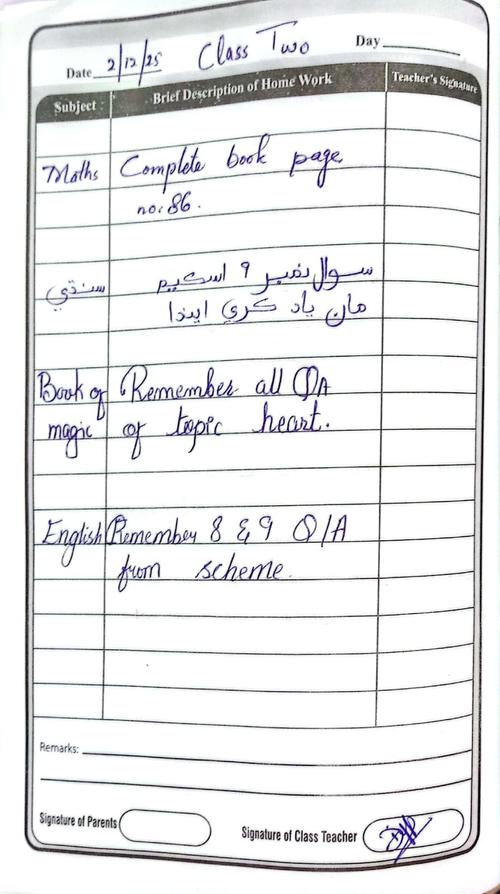 Date 2/12/25 Class Two Day
Subject Brief Description of Home Work Teacher's Signature
Maths Complete book page
no:86.
سنڌي سوال نمبر 9 اسڪيم
مان ياد ڪري ايندا
Book of Remember all QA
magic of topic heart.
English Remember 8 & 9 Q/A
from scheme.
Remarks:
Signature of Parents Signature of Class Teacher